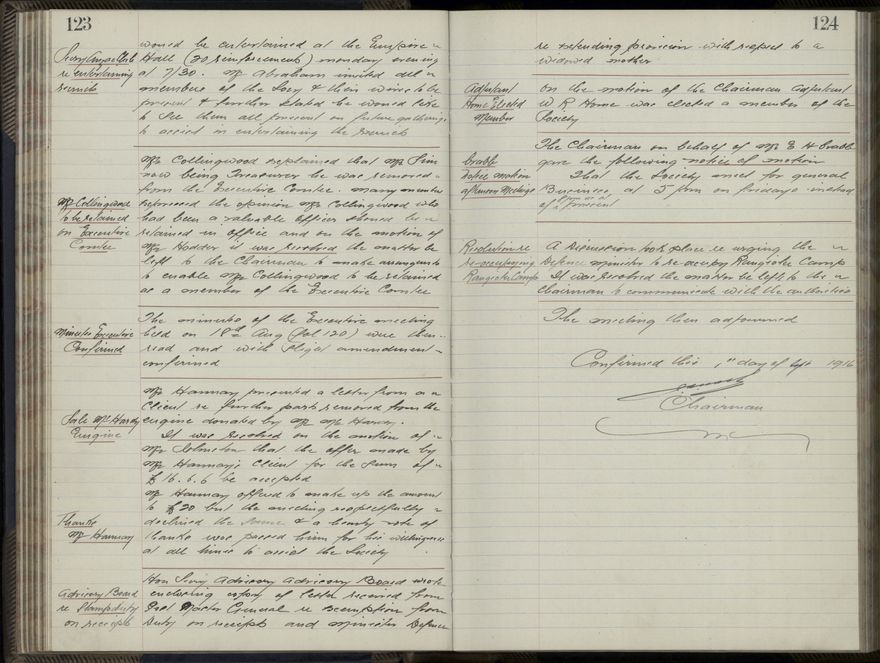 123
would be entertained at the Empire
Hall (30 reinforcements) monday evening
at 7/30. Mr Abraham invited all
members of the Socy & their wives to be
present & further stated he would like
to see them all present on future gatherings
to assist in entertaining the
re entertaining
Mr Collingwood explained that Mr Sim
now being Treasurer he was removed
from the Executive Comtee. many members
expressed the opinion Mr Collingwood who
had been a valuable officer should be
retained in office and on the motion of
Mr Hodder it was resolved the matter be
left to the Chairman to make arrangmts
to enable Mr Collingwood to be retained
as a member of the Executive Comtee
Mr Collingwood
to be retained
on Executive
Comtee
The minutes of the Executive meeting
held on 18th Aug (Fol 120) were then
read and with slight amendment
confirmed
Minutes Executive
Confirmed
Mr Hannay presented a letter from a
Client re further parts removed from the
engine donated by Mr
It was resolved on the motion of
Mr Johnston that the offer made by
Mr Hannay's Client for the sum of
£16.6.6 be accepted
Mr Hannay offered to make up the amount
to £20 but the meeting respectfully
declined the same & a hearty vote of
thanks was passed him for his willingness
at all times to assist the Society
Sale
Engine
Thanks
Mr Hannay
Hon Secy Advisory Advisory Board wrote
enclosing copy of letter received from
Post Master General re exemption from
Duty on receipts and Minister Defence
Advisory Board
re Stamp duty
on receipts
124
re extending provision with respect to a
widowed mother
On the motion of the Chairman Adjutant
W R Home was elected a member of the
Society
Adjutant
Home Elected
Member
The Chairman on behalf of Mr E H
gave the following notice of motion
That the Society meet for general
Business at 5 pm on fridays instead
of 8 pm as at present
notice motion
A discussion took place re urging the
Defence minister to re-occupy Rangiotu Camp
It was resolved the matter be left to the
Chairman to communicate with the authorities
Resolution re
re-occupying
Rangiotu Camp
The meeting then adjourned
Confirmed this 1st day of 1916
Chairman